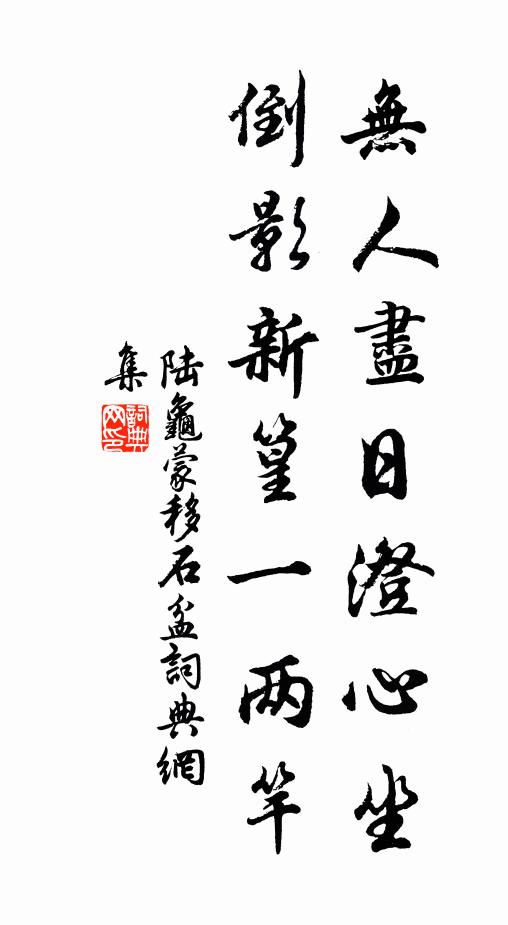 無人盡日澄心坐
倒影新篁一两竿
陆龜蒙移石盆詞典網
集
詞典
网印